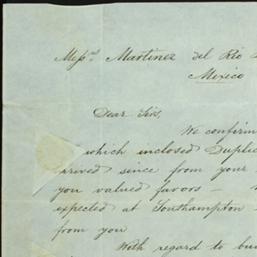 Mess.rs Martinez del Rio
Mexico
Dear Sirs,
We confirm
which enclosed Duplic
arrived since from your
you valued favors –
expected at Southampton
from you
With regard to bu